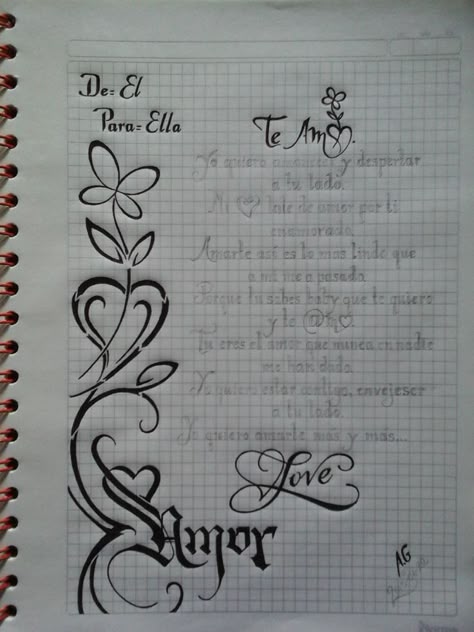 De= El
Para= Ella
Te Amo.
Yo quiero amanecer y despertar
a tu lado.
Mi late de amor por ti
enamorado.
Amarte así es lo mas lindo que
a mi me a pasado
Porque tu sabes baby que te quiero
y te @m♡.
Tu eres el amor que nunca en nadie
me han dado.
Yo quiero estar contigo, envejeser
a tu lado.
Yo quiero amarte más y más...
Love
Amor
A.G